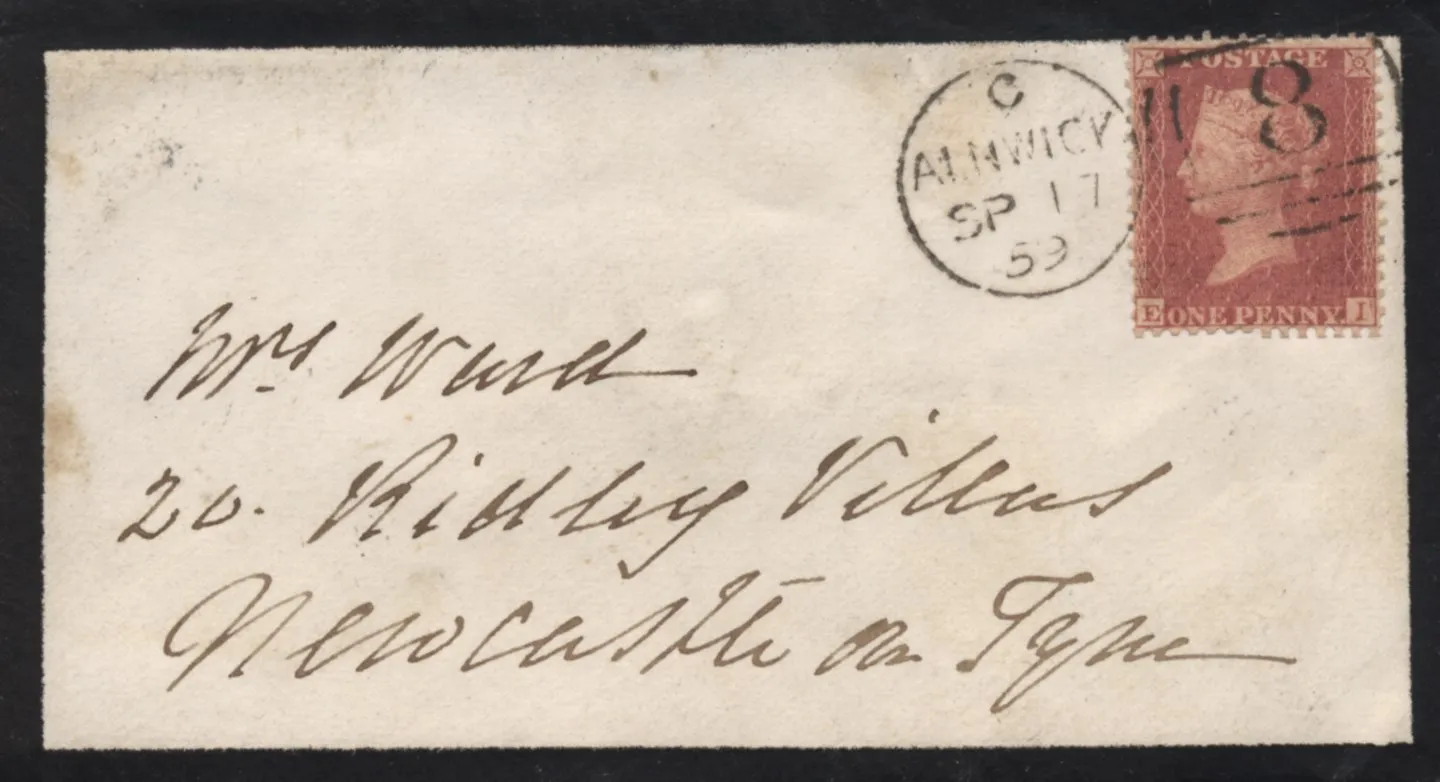 C
ALNWICK
SP 17
59
8
POSTAGE
E ONE PENNY. I
Mrs Ward
20. Ridley Villas
Newcastle on Tyne